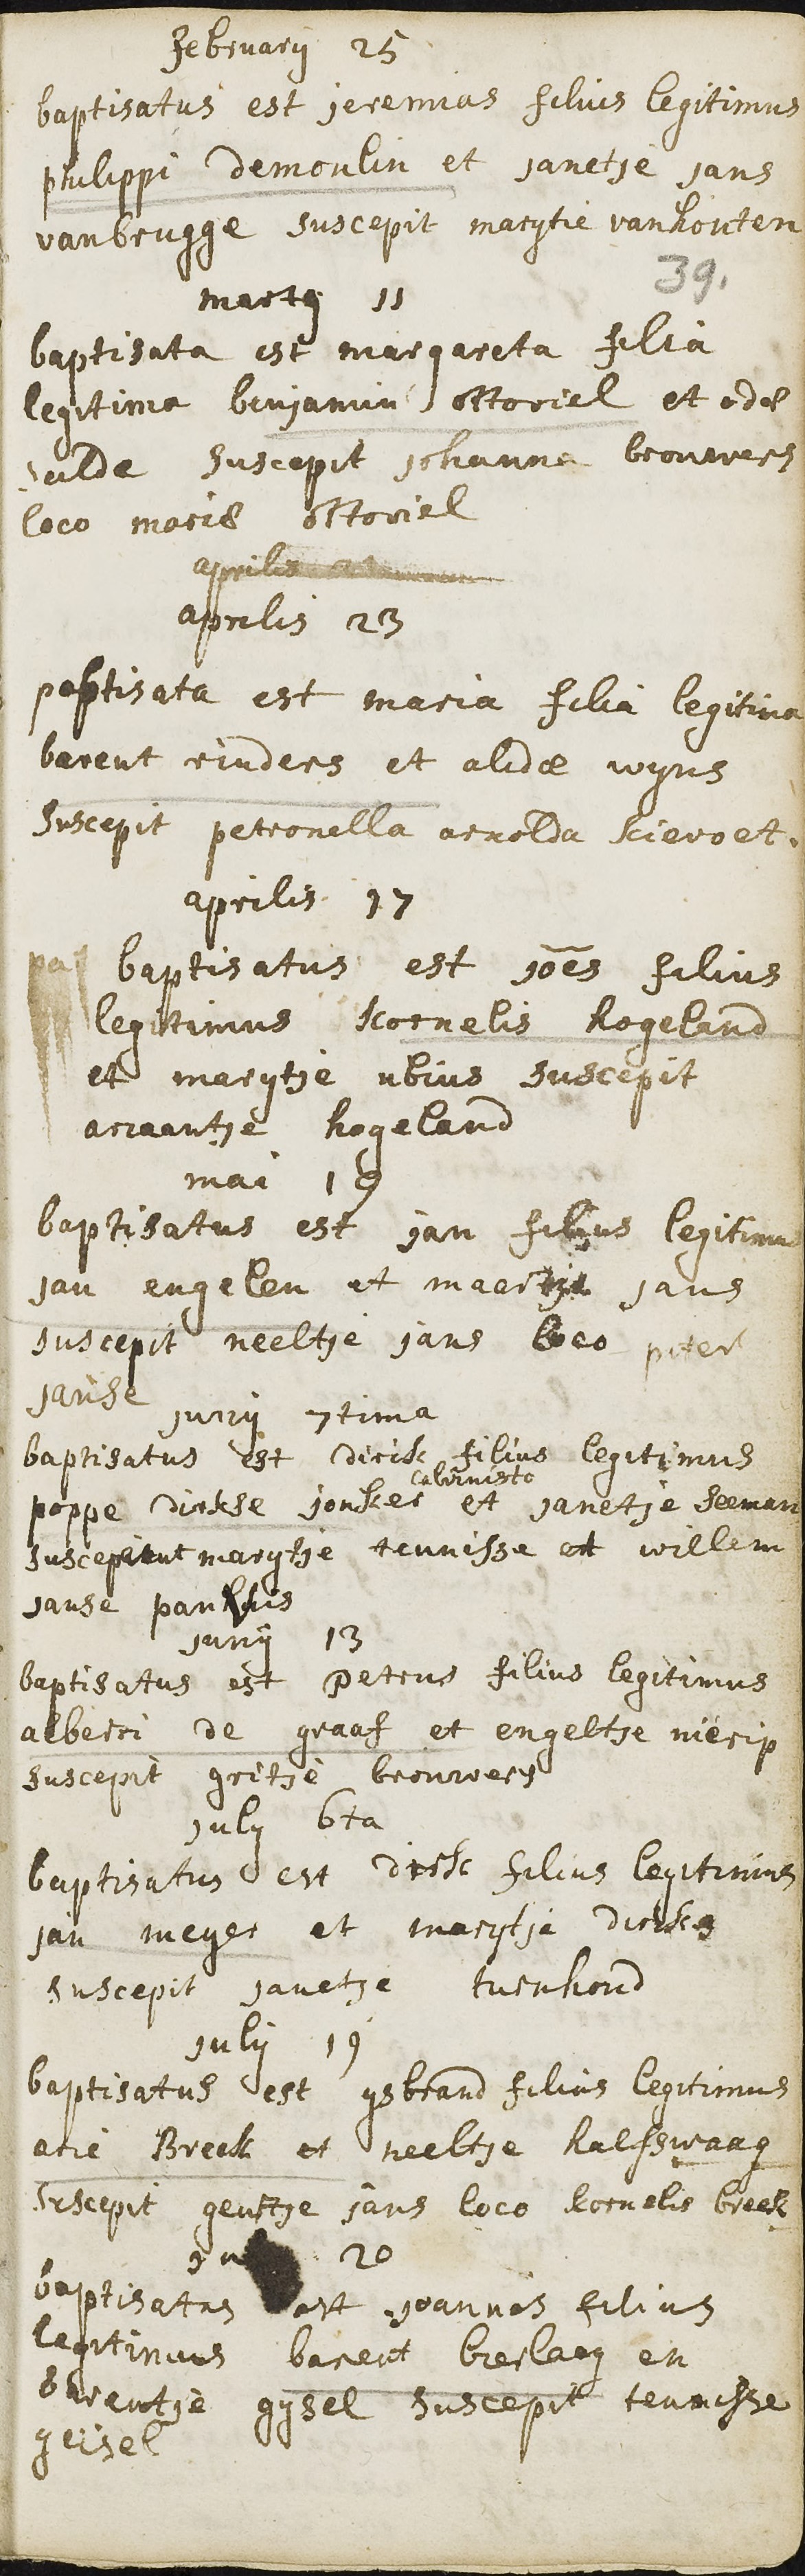 februarij 25
baptisatus est jeremias filius legitimus
philippi demoulin et janetje jans
vanbrugge suscepit marytie vanhouten
39.
martij 11
baptisata est margareta filia
legitima benjamin ottoriel et adæ
suscepit johanna brouwers
loco mariæ ottoriel
aprilis
aprilis 23
paptisata est maria filia legitima
barent rinders et alidæ wyns
suscepit petronella arnolda kievoet.
aprilis 17
baptisatus est jōēs filius
legitimus kornelis hogeland
et marytje ubius suscepit
ariaantje hogeland
mai 19
baptisatus est jan filius legitimus
jan engelen et maertje jans
suscepit neeltje jans loco piter
janse
junij 7tima
baptisatus est dirik filius legitimus
calvinisto
poppe dirkse jonker et janetje seeman
susceperunt marytje teunisse et willem
janse
junij 13
baptisatus est petrus filius legitimus
alberti de graaf et engeltje nierip
suscepit gritje brouwers
july 6ta
baptisatus est dirk filius legitimus
jan meyer et marytje dirks
suscepit janetje turnhoud
julij 19
baptisatus est ysbrand filius legitimus
arie Breek et neeltje halfswaag
suscepit geertje jans loco kornelis breek
20
baptisatus est joannes filius
legitimus barent breslaag en
barentje gysel suscepit teunisse
geisel